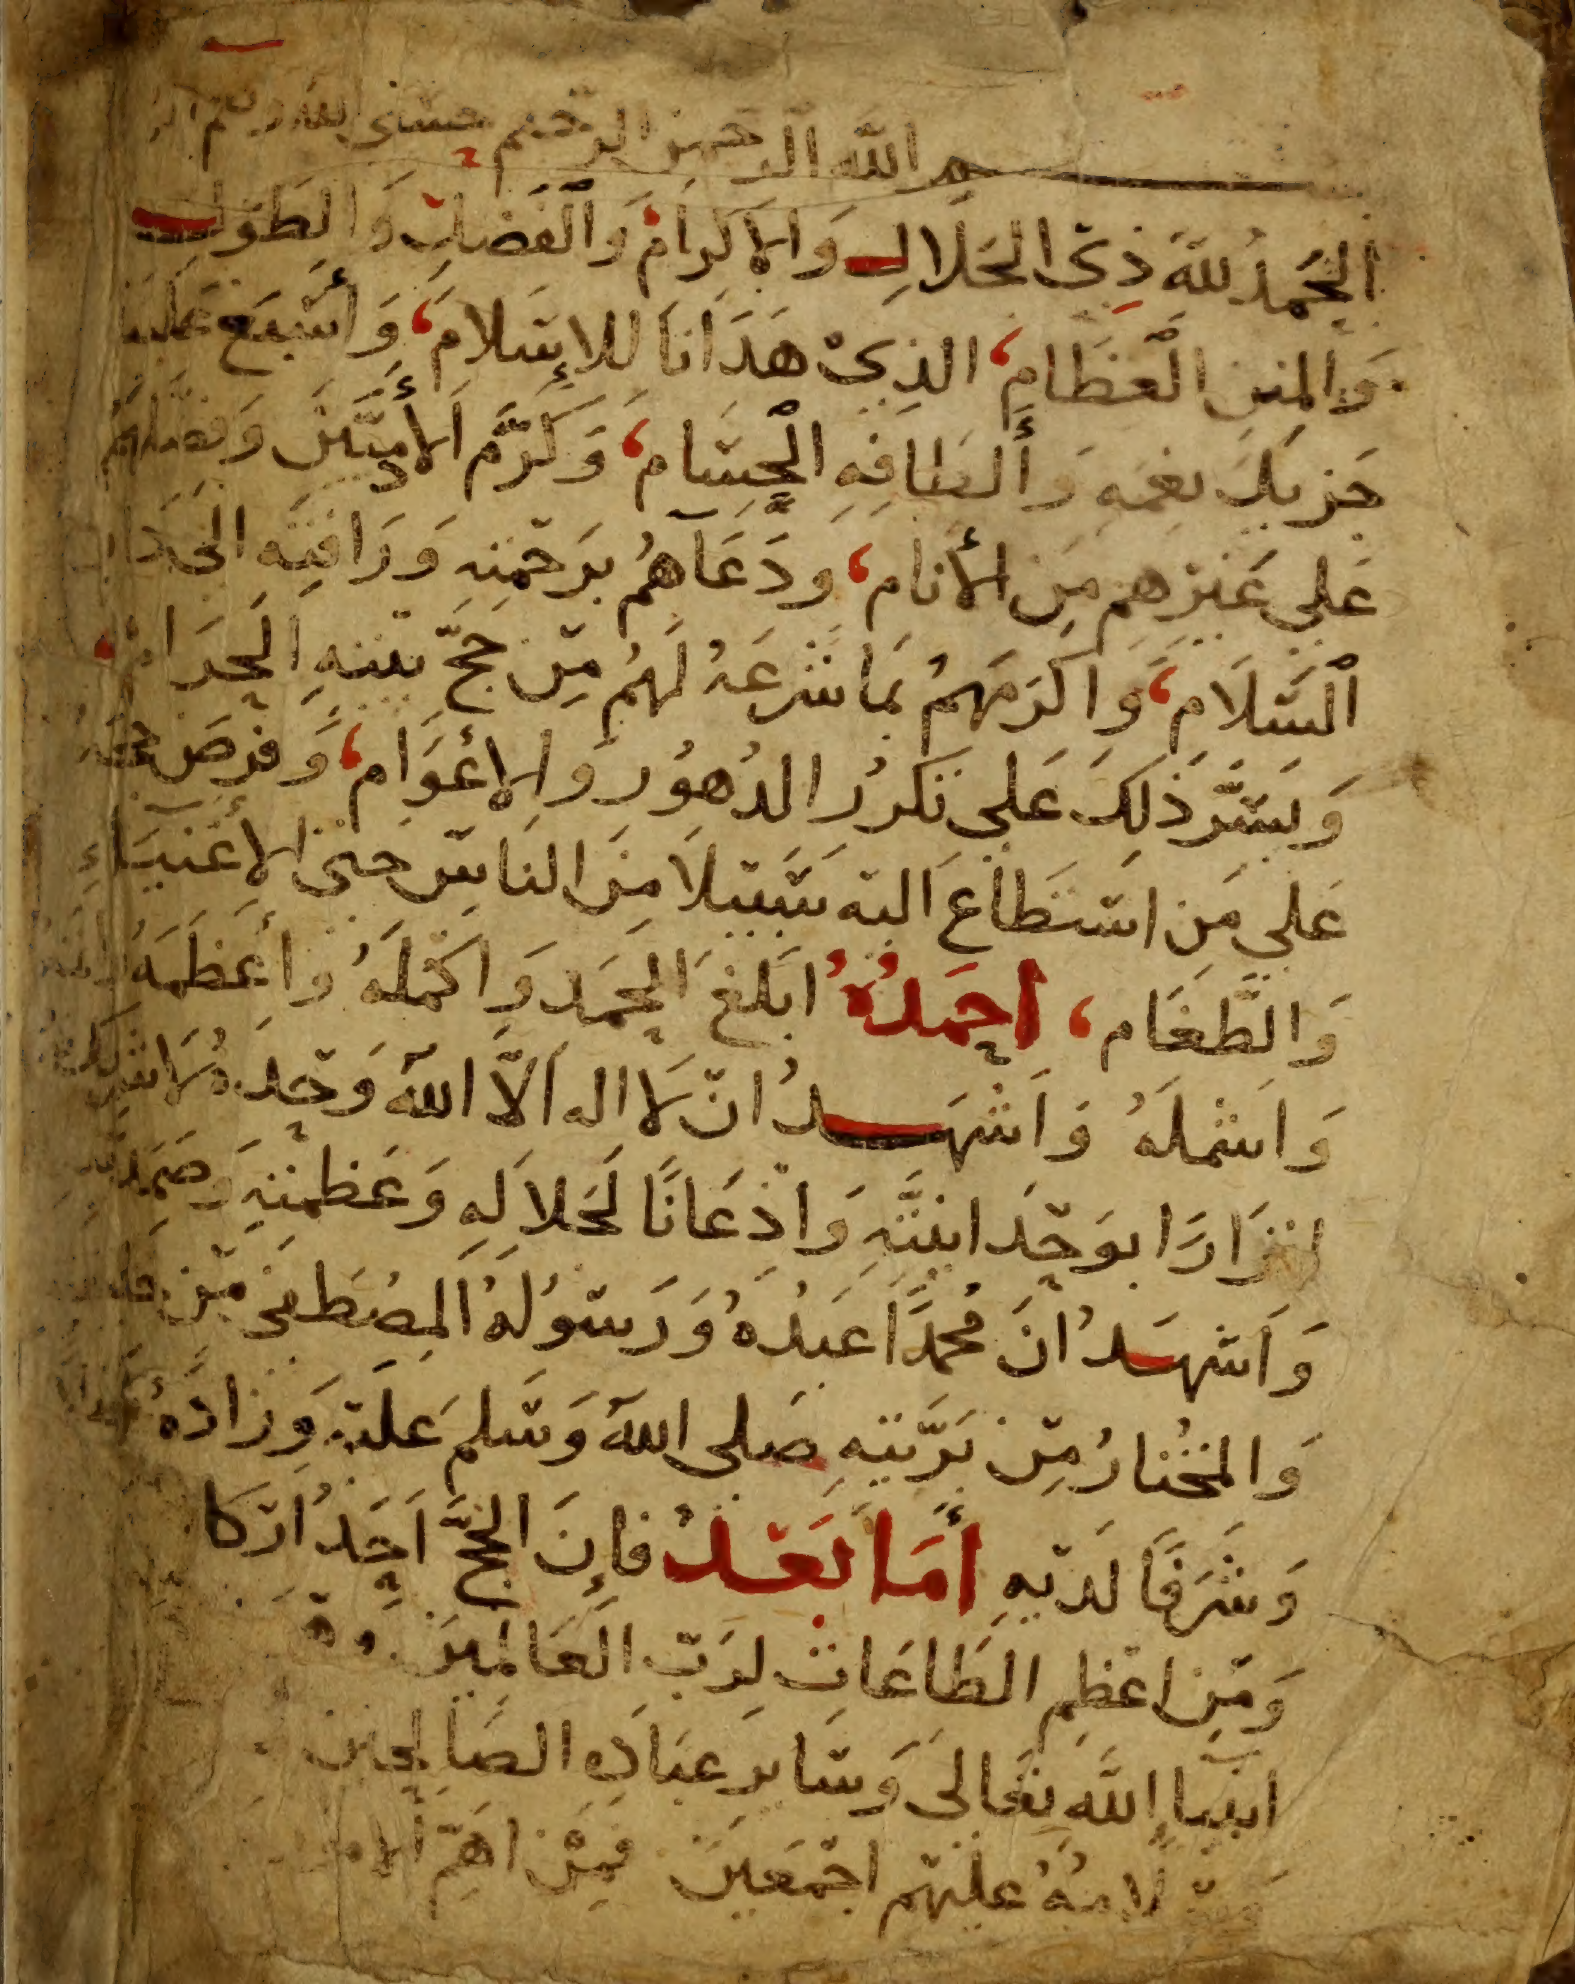 بسم الله الرحمن الرحيم حسبي الله ونعم
الحمد لله ذي الجلال والإكرام، والفضل والطول
والمنن العظام، الذي هدانا للإسلام، وأسبغ علينا
جزيل نعمه وألطافه الجسام، وكرّم الآدميين وفضلهم
على غيرهم من الأنام، ودعاهم برحمته ورأفته الى دار
السّلام، وأكرمهم بما شرعه لهم من حجّ بيته الحرام،
ويسّر ذلك على تكرر الدهور والأعوام، وفرض حجه
على من استطاع اليه سبيلا من الناس حتى الأغنياء
والطّغام، احمدُهُ ابلغ الحمد واكمله وأعظمه
واشمله واشهد ان لا اله الّا الله وحده لا شريك له
اقرارا بوحدانيته واذعانا لجلاله وعظمته وصمديته
واشهد ان محمدا عبده ورسوله المصطفى من
والمختار من بريّته صلى الله وسلم عليه وزاده
وشرفا لديه أما بعد فإن الحجّ احد اركا
ومن اعظم الطاعات لرب العالمين
انبيا الله تعالى وساير عباده الصالحين
وسلامه عليهم اجمعين فمن اهمّ